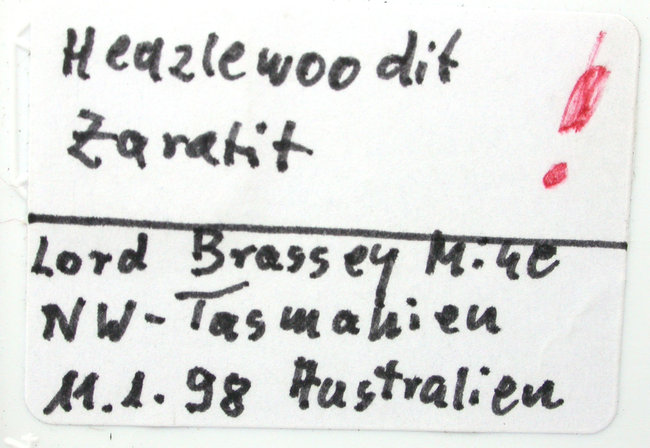 Heazlewoodit
Zaratit
!
Lord Brassey Mine
NW-Tasmanien
11.1.98 Australien